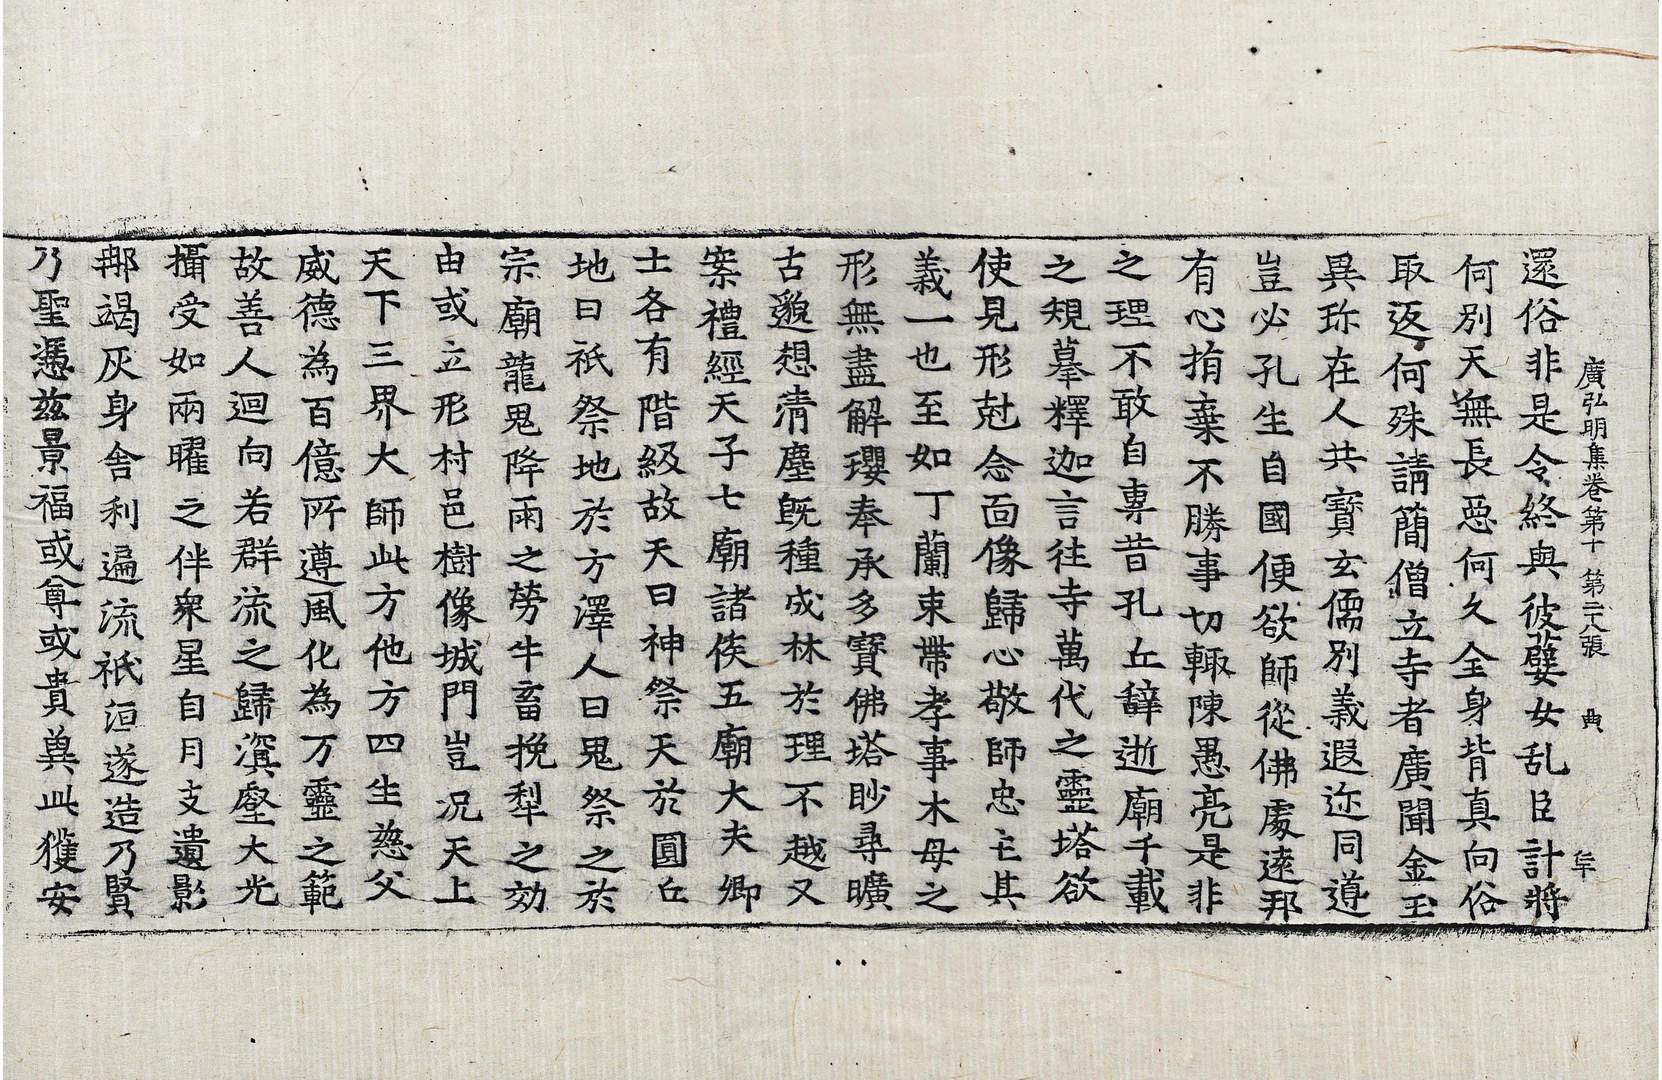 廣弘明集卷第十 第二十八張 典
還俗非是令終與彼嬖女乱臣計將
何別天無長惡何久全身背真向俗
取返何殊請簡僧立寺者廣聞金玉
異珎在人共寳玄儒別義遐迩同遵
豈必孔生自國便欲師從佛處遠邦
有心捐棄不勝事切輙陳愚亮是非
之理不敢自專昔孔丘辭逝廟千載
之規摹釋迦言往寺萬代之靈塔欲
使見形尅念面像歸心敬師忠主其
義一也至如丁蘭束帶孝事木母之
形無盡解瓔奉承多寳佛塔眇尋曠
古邈想清塵旣種成林於理不越又
案禮經天子七廟諸侯五廟大夫卿
士各有階級故天曰神祭天於圓丘
地曰祇祭地於方澤人曰鬼祭之於
宗廟龍鬼降雨之勞牛畜挽犁之効
由或立形村邑樹像城門豈况天上
天下三界大師此方他方四生慈父
威德為百億所遵風化為万靈之範
故善人迴向若群流之歸溟壑大光
攝受如兩曜之伴衆星自月支遺影
那竭灰身舍利遍流祇洹遂造乃賢
乃聖憑兹景福或尊或貴奠此獲安